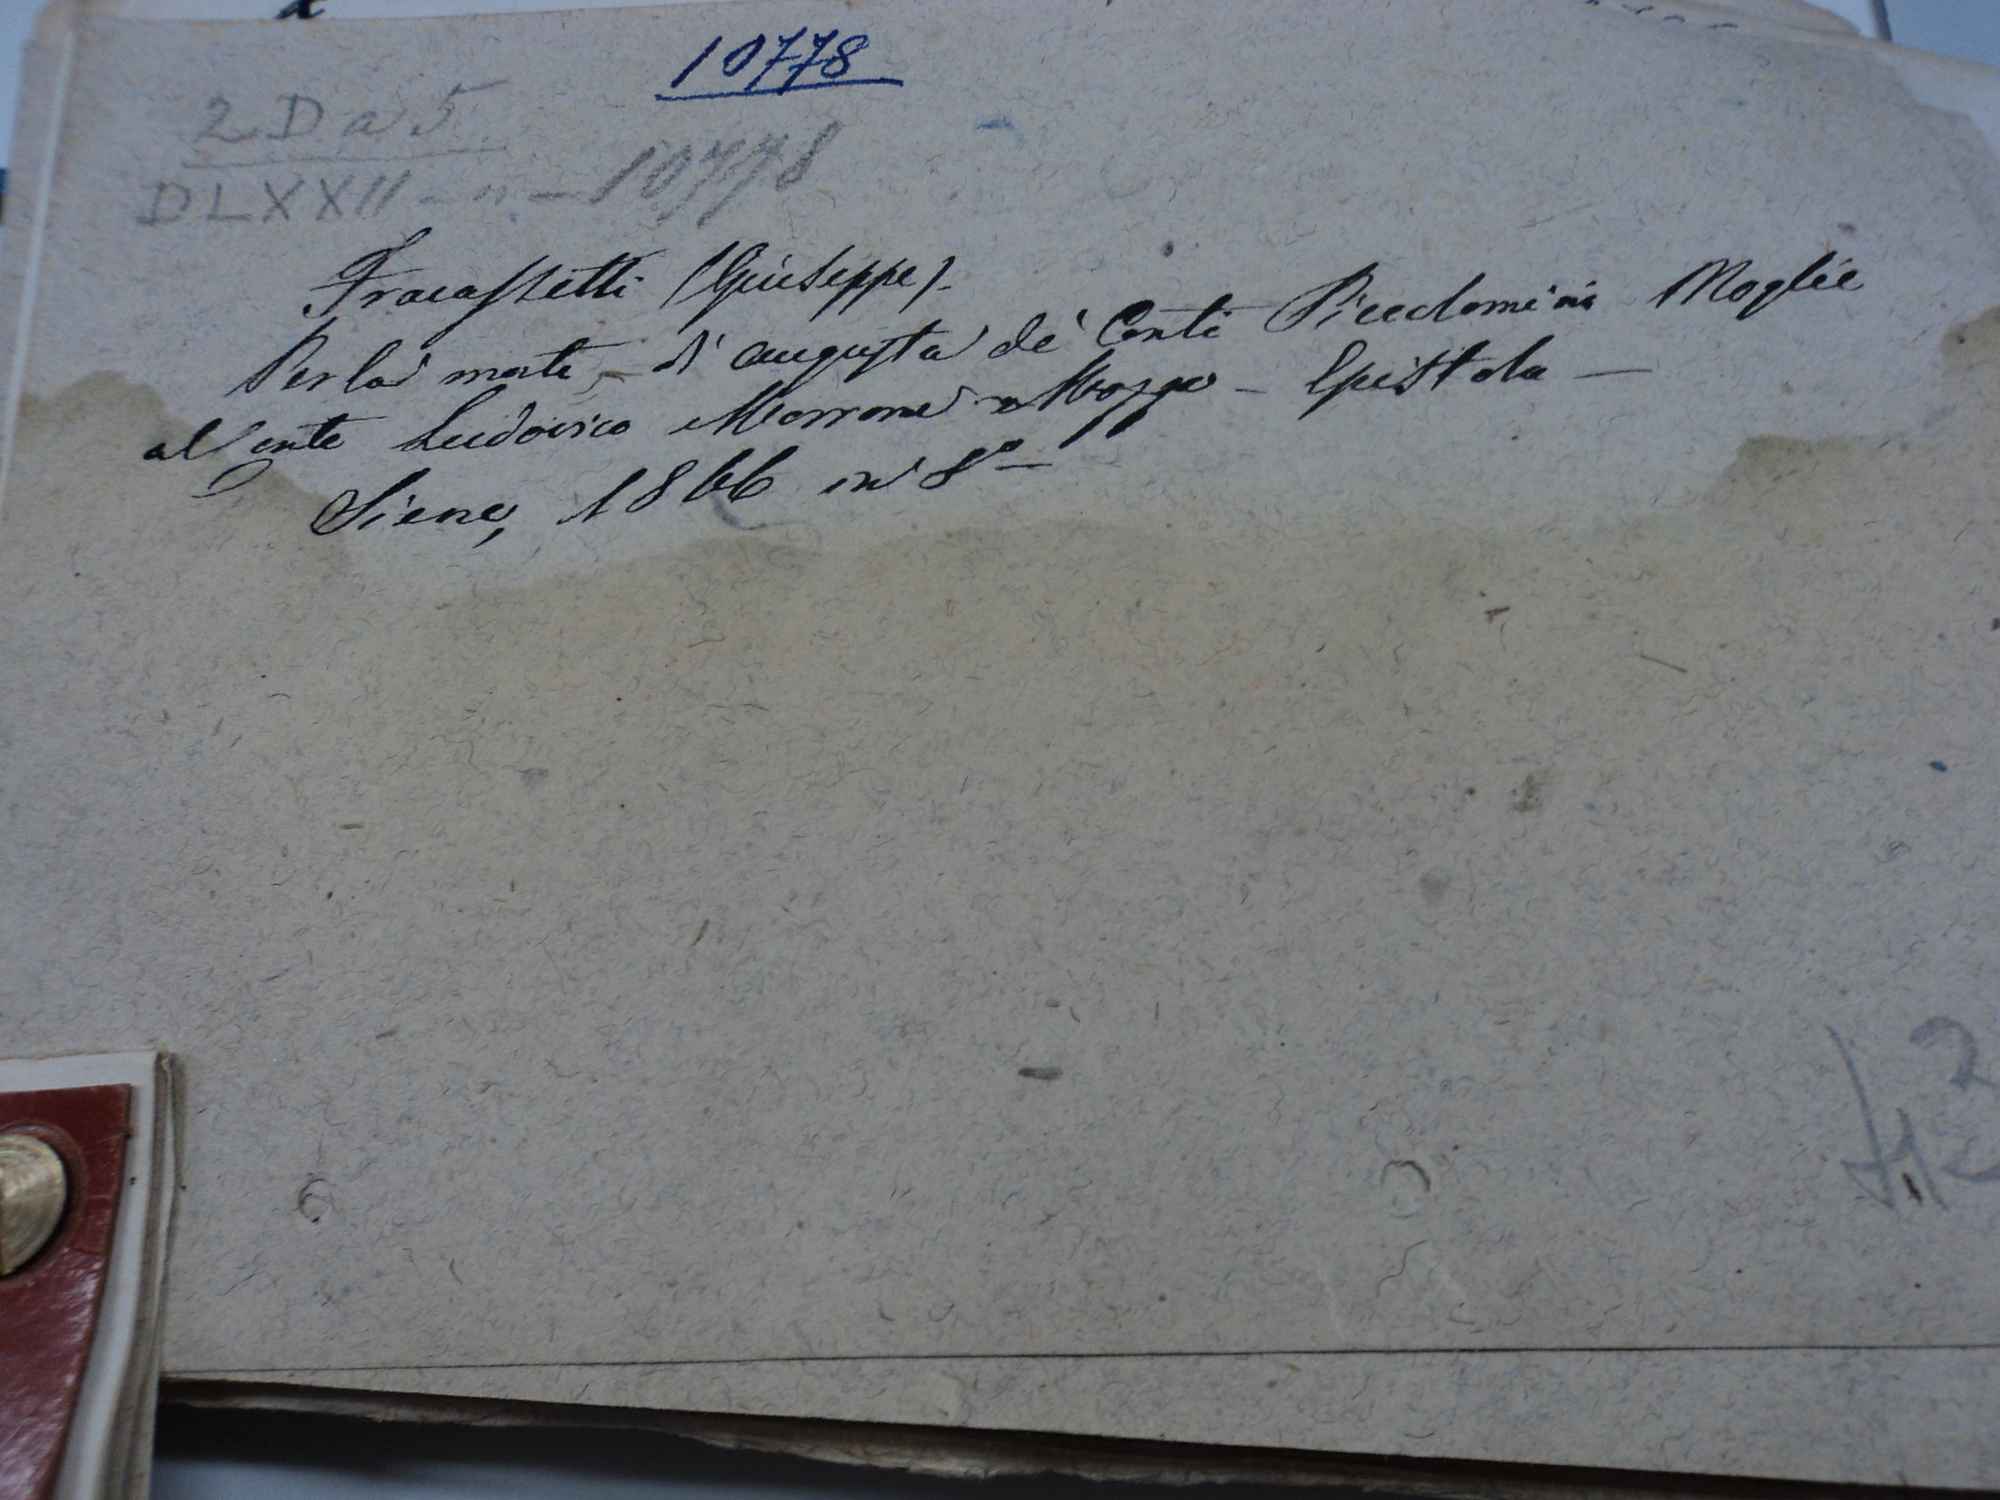 10778
2 D a 5
DLXXII - n. - 10778
Fracassetti (Giuseppe).
Per la morte di Augusta de' Conti Piccolomini Moglie
al Conte Ludovico Morrone Mozzo - Epistola -
Siena, 1866 in 8°